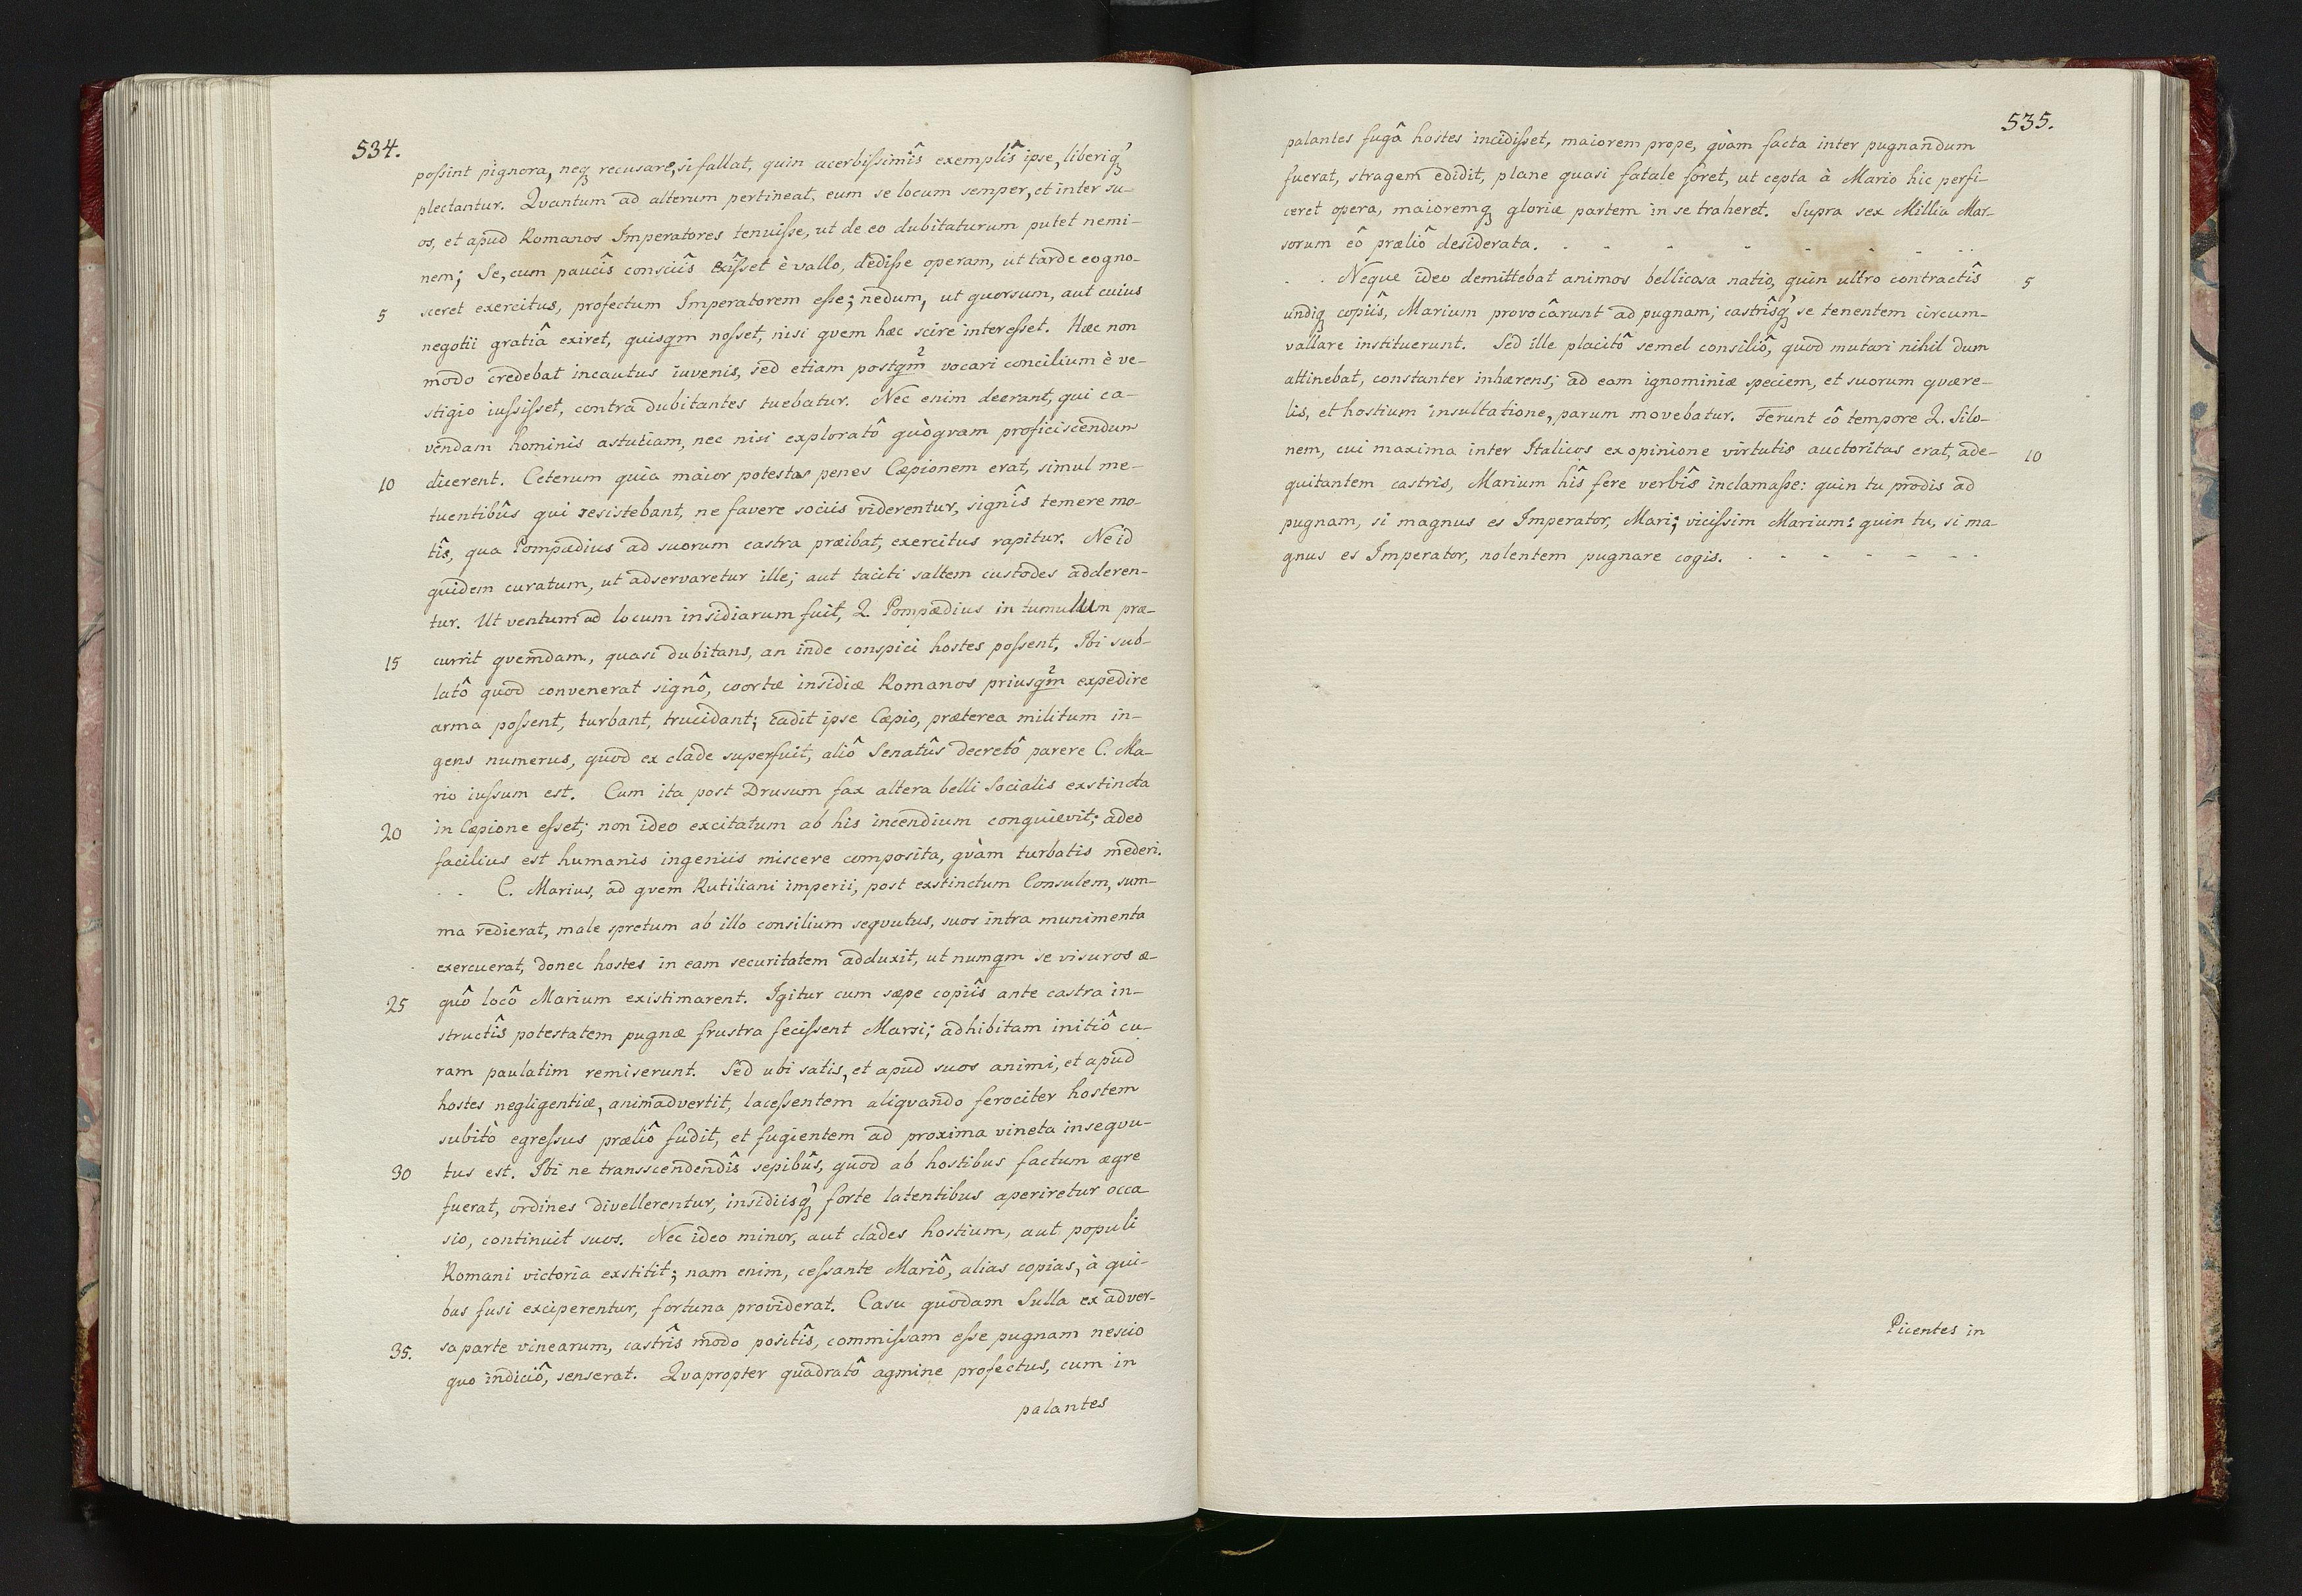 534.
poſsint pignora, neq₃ recusare, si fallat, quin acerbiſsimîs exemplîs ipse, liberiq₃́
plectantur. Qvantum ad alterum pertineat, eum se locum semper, et inter su-
os, et apud Romanos Imperatores tenuiſse, ut de eo dubitaturum putet nemi-
nem; Se, cum paucîs consciîs exîſset è vallo, dediſse operam, ut tarde cogno-
5 sceret exercitus, profectum Imperatorem eſse; nedum, ut quorsum, aut cuius
negotii gratiâ exiret, quisqm noſset, nisi qvem hæc scire intereſset. Hæc non
modo credebat incautus iuvenis, sed etiam postqm̊ vocari concilium è ve-
stigio iuſsiſset, contra dubitantes tuebatur. Nec enim deerant, qui ca-
vendam hominis astutiam, nec nisi exploratô quòqvam proficiscendum
10 dicerent. Ceterum quia maior potestas penes Cæpionem erat, simul me-
tuentibûs qui resistebant, ne favere sociis viderentur, signîs temere mo-
tîs, qua Pompædius ad suorum castra præibat, exercitus rapitur. Ne id
quidem curatum, ut adservaretur ille; aut taciti saltem custodes adderen-
tur. Ut ventum ad locum insidiarum fuit, Q. Pompædius in tumulum præ-
15 currit qvemdam, quasi dubitans, an inde conspici hostes poſsent. Ibi sub-
latô quod convenerat signô, coortæ insidiæ Romanos priusqm̊ expedire
arma poſsent, turbant, trucidant; cadit ipse Cæpio, præterea militum in-
gens numerus, quod ex clade superfuit, aliô Senatûs decretô parere C. Ma-
rio iuſsum est. Cum ita post Drusum fax altera belli Socialis exstincta
20 in Cæpione eſset; non ideo excitatum ab his incendium conquievit; adeo
facilius est humanis ingeniis miscere composita, qvàm turbatis mederi.
. . C. Marius, ad qvem Rutiliani imperii, post exstinctum Consulem, sum-
ma redierat, male spretum ab illo consilium seqvutus, suos intra munimenta
exercuerat, donec hostes in eam securitatem adduxit, ut numqm se visuros æ-
25 quô locô Marium existimarent. Igitur cum sæpe copiîs ante castra in-
structîs potestatem pugnæ frustra feciſsent Marsi; adhibitam initiô cu-
ram paulatim remiserunt. Sed ubi satis, et apud suos animi, et apud
hostes negligentiæ, animadvertit, laceſsentem aliqvando ferociter hostem
subitò egreſsus prœliô fudit, et fugientem ad proxima vineta inseqvu-
30 tus est. Ibi ne transscendendîs sepibûs, quod ab hostibus factum ægre
fuerat, ordines divellerentur, insidiisq₃́ forte latentibus aperiretur occa
sio, continuit suos. Nec ideo minor, aut clades hostium, aut populi
Romani victoria exstitit; nam enim, ceſsante Mariô, alias copias, à qui-
bus fusi exciperentur, fortuna providerat. Casu quodam Sulla ex adver-
35. sa parte vinearum, castrîs modo positîs, commiſsam eſse pugnam nescio
quo indiciô, senserat. Qvapropter quadratô agmine profectus, cum in
palantes
535.
palantes fugâ hostes incidiſset, maiorem prope, qvàm facta inter pugnandum
fuerat, stragem edidit, plane quasi fatale foret, ut cepta à Mario hic perfi-
ceret opera, maioremq₃ gloriæ partem in se traheret. Supra sex Millia Mar-
sorum eô prœliô desiderata. . - - - - - . .
5 . . Neque ideo demittebat animos bellicosa natio, quin ultro contractîs
undiq₃ copiîs, Marium provocârunt ad pugnam; castrîsq₃́ se tenentem circum-
vallare instituerunt. Sed ille placitô semel consiliô, quod mutari nihil dum
attinebat, constanter inhærens; ad eam ignominiæ speciem, et suorum qvære-
lis, et hostium insultatione, parum movebatur. Ferunt eô tempore Q. Silo-
10 nem, cui maxima inter Italicos ex opinione virtutis auctoritas erat, ade-
quitantem castris, Marium hîs fere verbîs inclamaſse: quin tu prodis ad
pugnam, si magnus es Imperator, Mari; viciſsim Marium: quin tu, si ma-
gnus es Imperator, nolentem pugnare cogis. . - - - - - - .
Picentes in